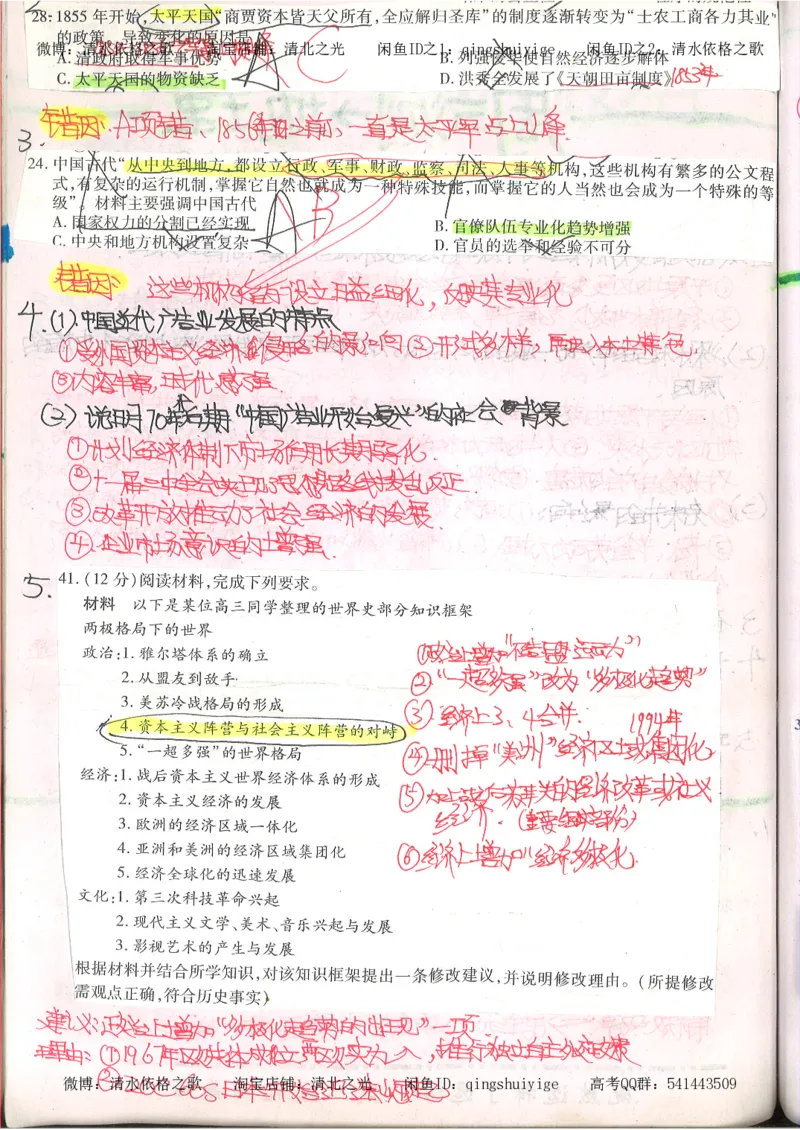 28. 1855 年开始,太平天国“商贾资本皆天父所有,全应解归圣库”的制度逐渐转变为“士农工商各力其业”
的政策。导致变化的原因是
微博: 清水依格之歌 淘宝店铺: 清北之光 闲鱼ID之1: qingshuiyige 闲鱼ID之2: 清水依格之歌
A. 清政府取得军事优势 B. 列强侵华使自然经济逐步解体
C. 太平天国的物资缺乏 D. 洪秀全发展了《天朝田亩制度》1853年
错因: A项错、1856年之前、一直是太平军占上峰.
3.
24. 中国古代“从中央到地方,都设立行政、军事、财政、监察、司法、人事等机构,这些机构有繁多的公文程
式,有复杂的运行机制,掌握它自然也就成为一种特殊技能,而掌握它的人当然也会成为一个特殊的等
级”。材料主要强调中国古代
A. 国家权力的分割已经实现 B. 官僚队伍专业化趋势增强
C. 中央和地方机构设置复杂 D. 官员的选举和经验不可分
错因: 这些机构的设立日益细化,使其专业化
4. (1) 中国近代广告业发展的特点
①受外国资本主义经济侵略的影响 ②形式多样,具有本土特色
③内容丰富,时代感强.
(2) 说明70年代后期“中国广告业开始复兴”的社会背景
①计划经济体制下市场作用长期弱化.
②十一届三中全会
③改革开放推动了社会经济的发展.
④企业市场意识的增强.
5. 41. (12 分)阅读材料,完成下列要求。
材料 以下是某位高三同学整理的世界史部分知识框架
两极格局下的世界
政治:1. 雅尔塔体系的确立
2. 从盟友到敌手
3. 美苏冷战格局的形成
4. 资本主义阵营与社会主义阵营的对峙
5. “一超多强”的世界格局
经济:1. 战后资本主义世界经济体系的形成
2. 资本主义经济的发展
3. 欧洲的经济区域一体化
4. 亚洲和美洲的经济区域集团化
5. 经济全球化的迅速发展
文化:1. 第三次科技革命兴起
2. 现代主义文学、美术、音乐兴起与发展
3. 影视艺术的产生与发展
①政治上增加“不结盟运动”
②“一超多强”改为“多极化趋势”
③经济上3、4合并. 1994年
④删掉“美洲”经济区域集团化
⑤加上战后苏联的经济改革或社义
经济. (重要组成部分)
⑥经济上增加“经济多极化.
根据材料并结合所学知识,对该知识框架提出一条修改建议,并说明修改理由。(所提修改
需观点正确,符合历史事实)
建议:政治上增加“多极化趋势的出现”一项
理由: ①1967年欧共体成立,西欧实力,推行独立自主外交政策
微博: 清水依格之歌 淘宝店铺: 清北之光 闲鱼ID: qingshuiyige 高考QQ群: 541443509